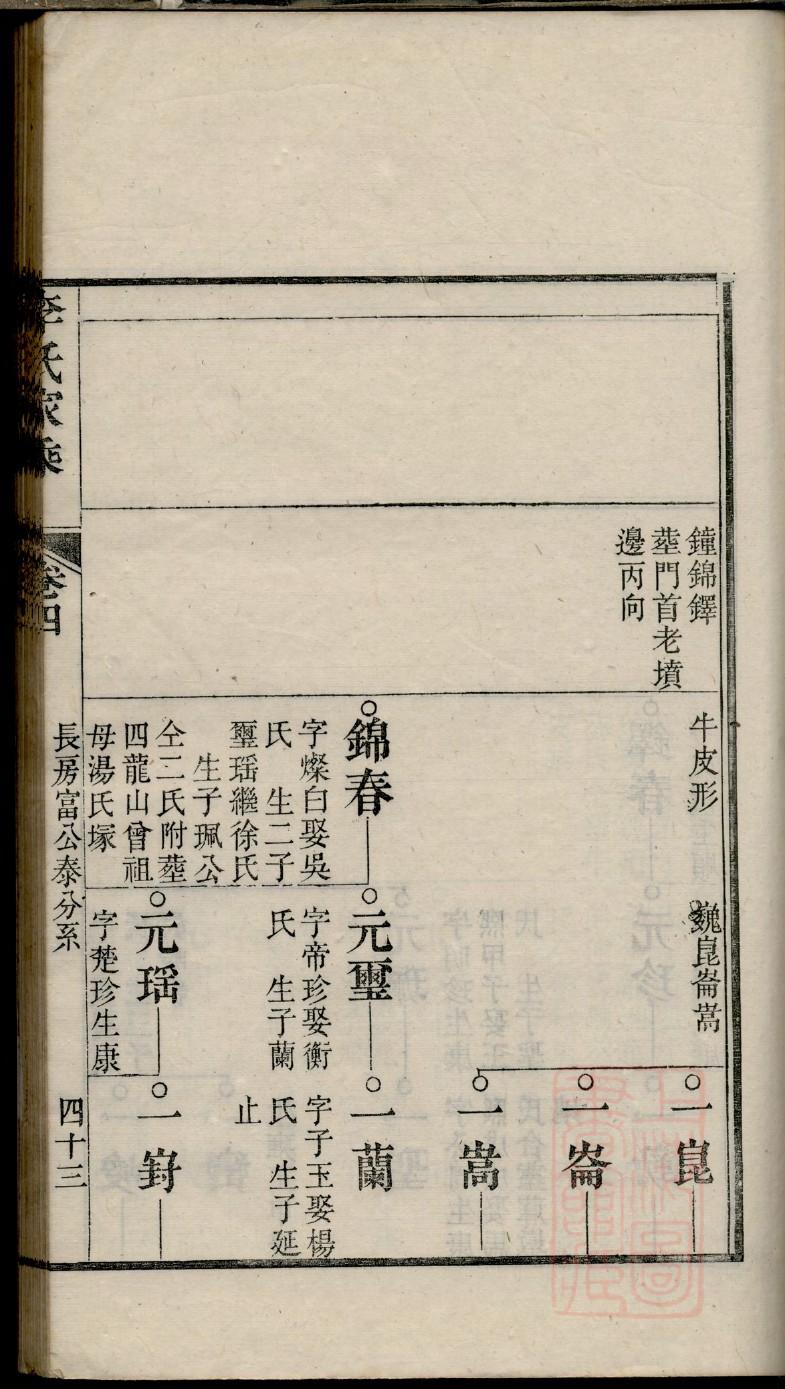 鐘錦鐸
塟門首老墳
邊丙向
牛皮形
巍崑崙嵩
一崑
一崙
一嵩
錦春
字燦白娶吳
氏 生二子
璽瑶繼徐氏
生子珮公
仝二氏附塟
四龍山曾祖
母湯氏塚
元璽
字帝珍娶衡
氏 生子蘭
一蘭
字子玉娶楊
氏 生子延
止
元瑶
字楚珍生康
一㟁
李氏家乘
卷四
長房富公泰分系
四十三